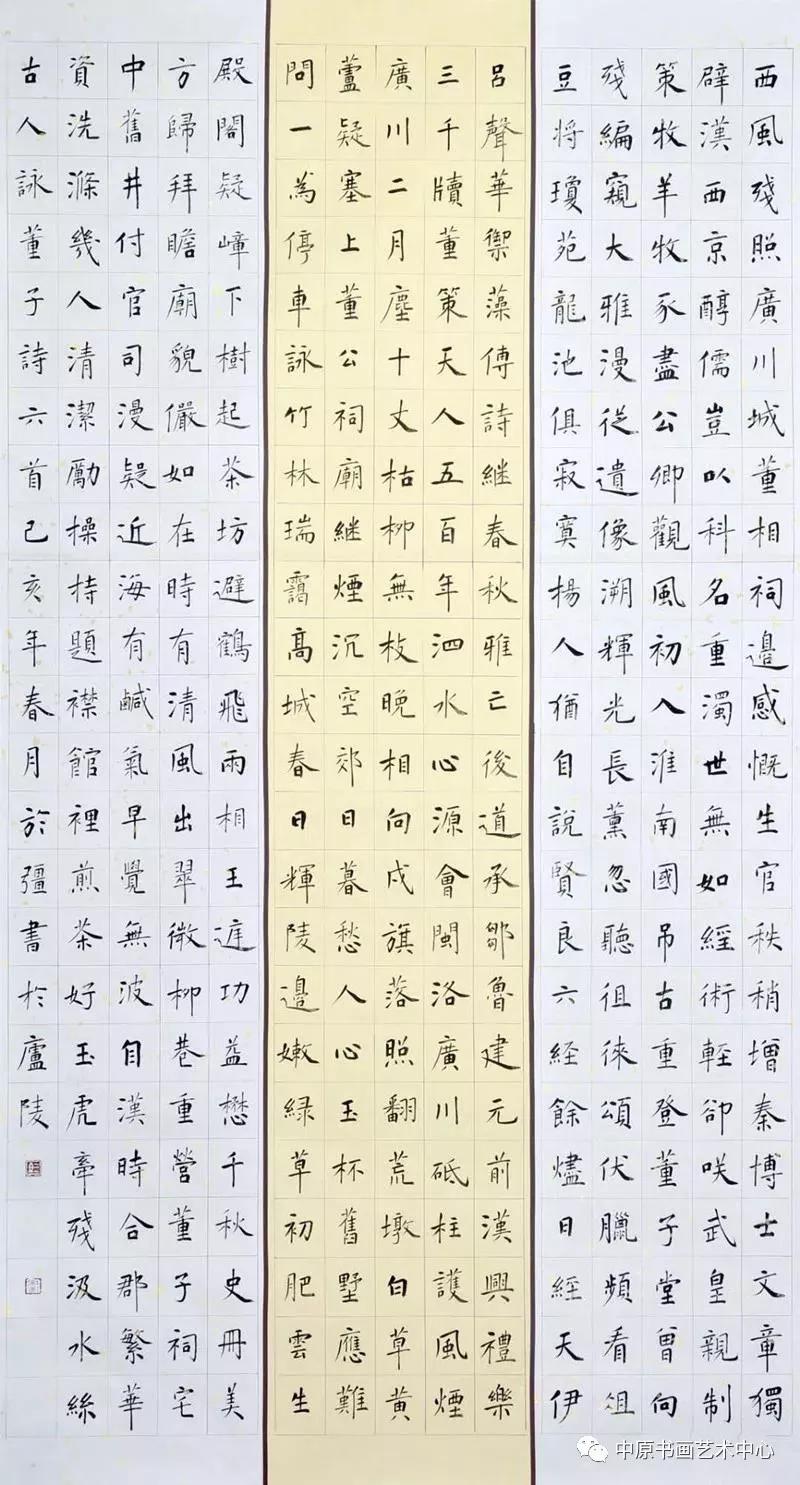 西風殘照廣川城董相祠邊感慨生官秩稍增秦博士文章獨
辟漢西京醇儒豈以科名重濁世無如經術輕卻咲武皇親制
策牧羊牧豕盡公卿觀風初入淮南國吊古重登董子堂曾向
殘編窺大雅漫從遺像溯輝光長薰忽聽徂徠頌伏臘頻看俎
豆將瓊苑龍池俱寂寞楊人猶自說賢良六経餘燼日經天伊
呂聲華禦藻傳詩継春秋雅亡後道承鄒魯建元前漢興禮樂
三千牘董策天人五百年泗水心源會閩洛廣川砥柱護風煙
廣川二月塵十丈枯柳無枝晚相向戍旗落照翻荒墩白草黃
蘆疑塞上董公祠廟継煙沉空郊日暮愁人心玉杯舊墅應難
問一為停車詠竹林瑞靄高城春日輝陵邊嫩綠草初肥雲生
殿閣疑嶂下樹起茶坊避鶴飛雨相王庭功益懋千秋史冊美
方歸拜瞻廟貌儼如在時有清風出翠微柳巷重營董子祠宅
中舊井付官司漫疑近海有鹹氣早覺無波自漢時合郡繁華
資洗滌幾人清潔勵操持題襟館裡煎茶好玉虎牽殘汲水絲
古人詠董子詩六首己亥年春月於彊書於廬陵
中原书画艺术中心